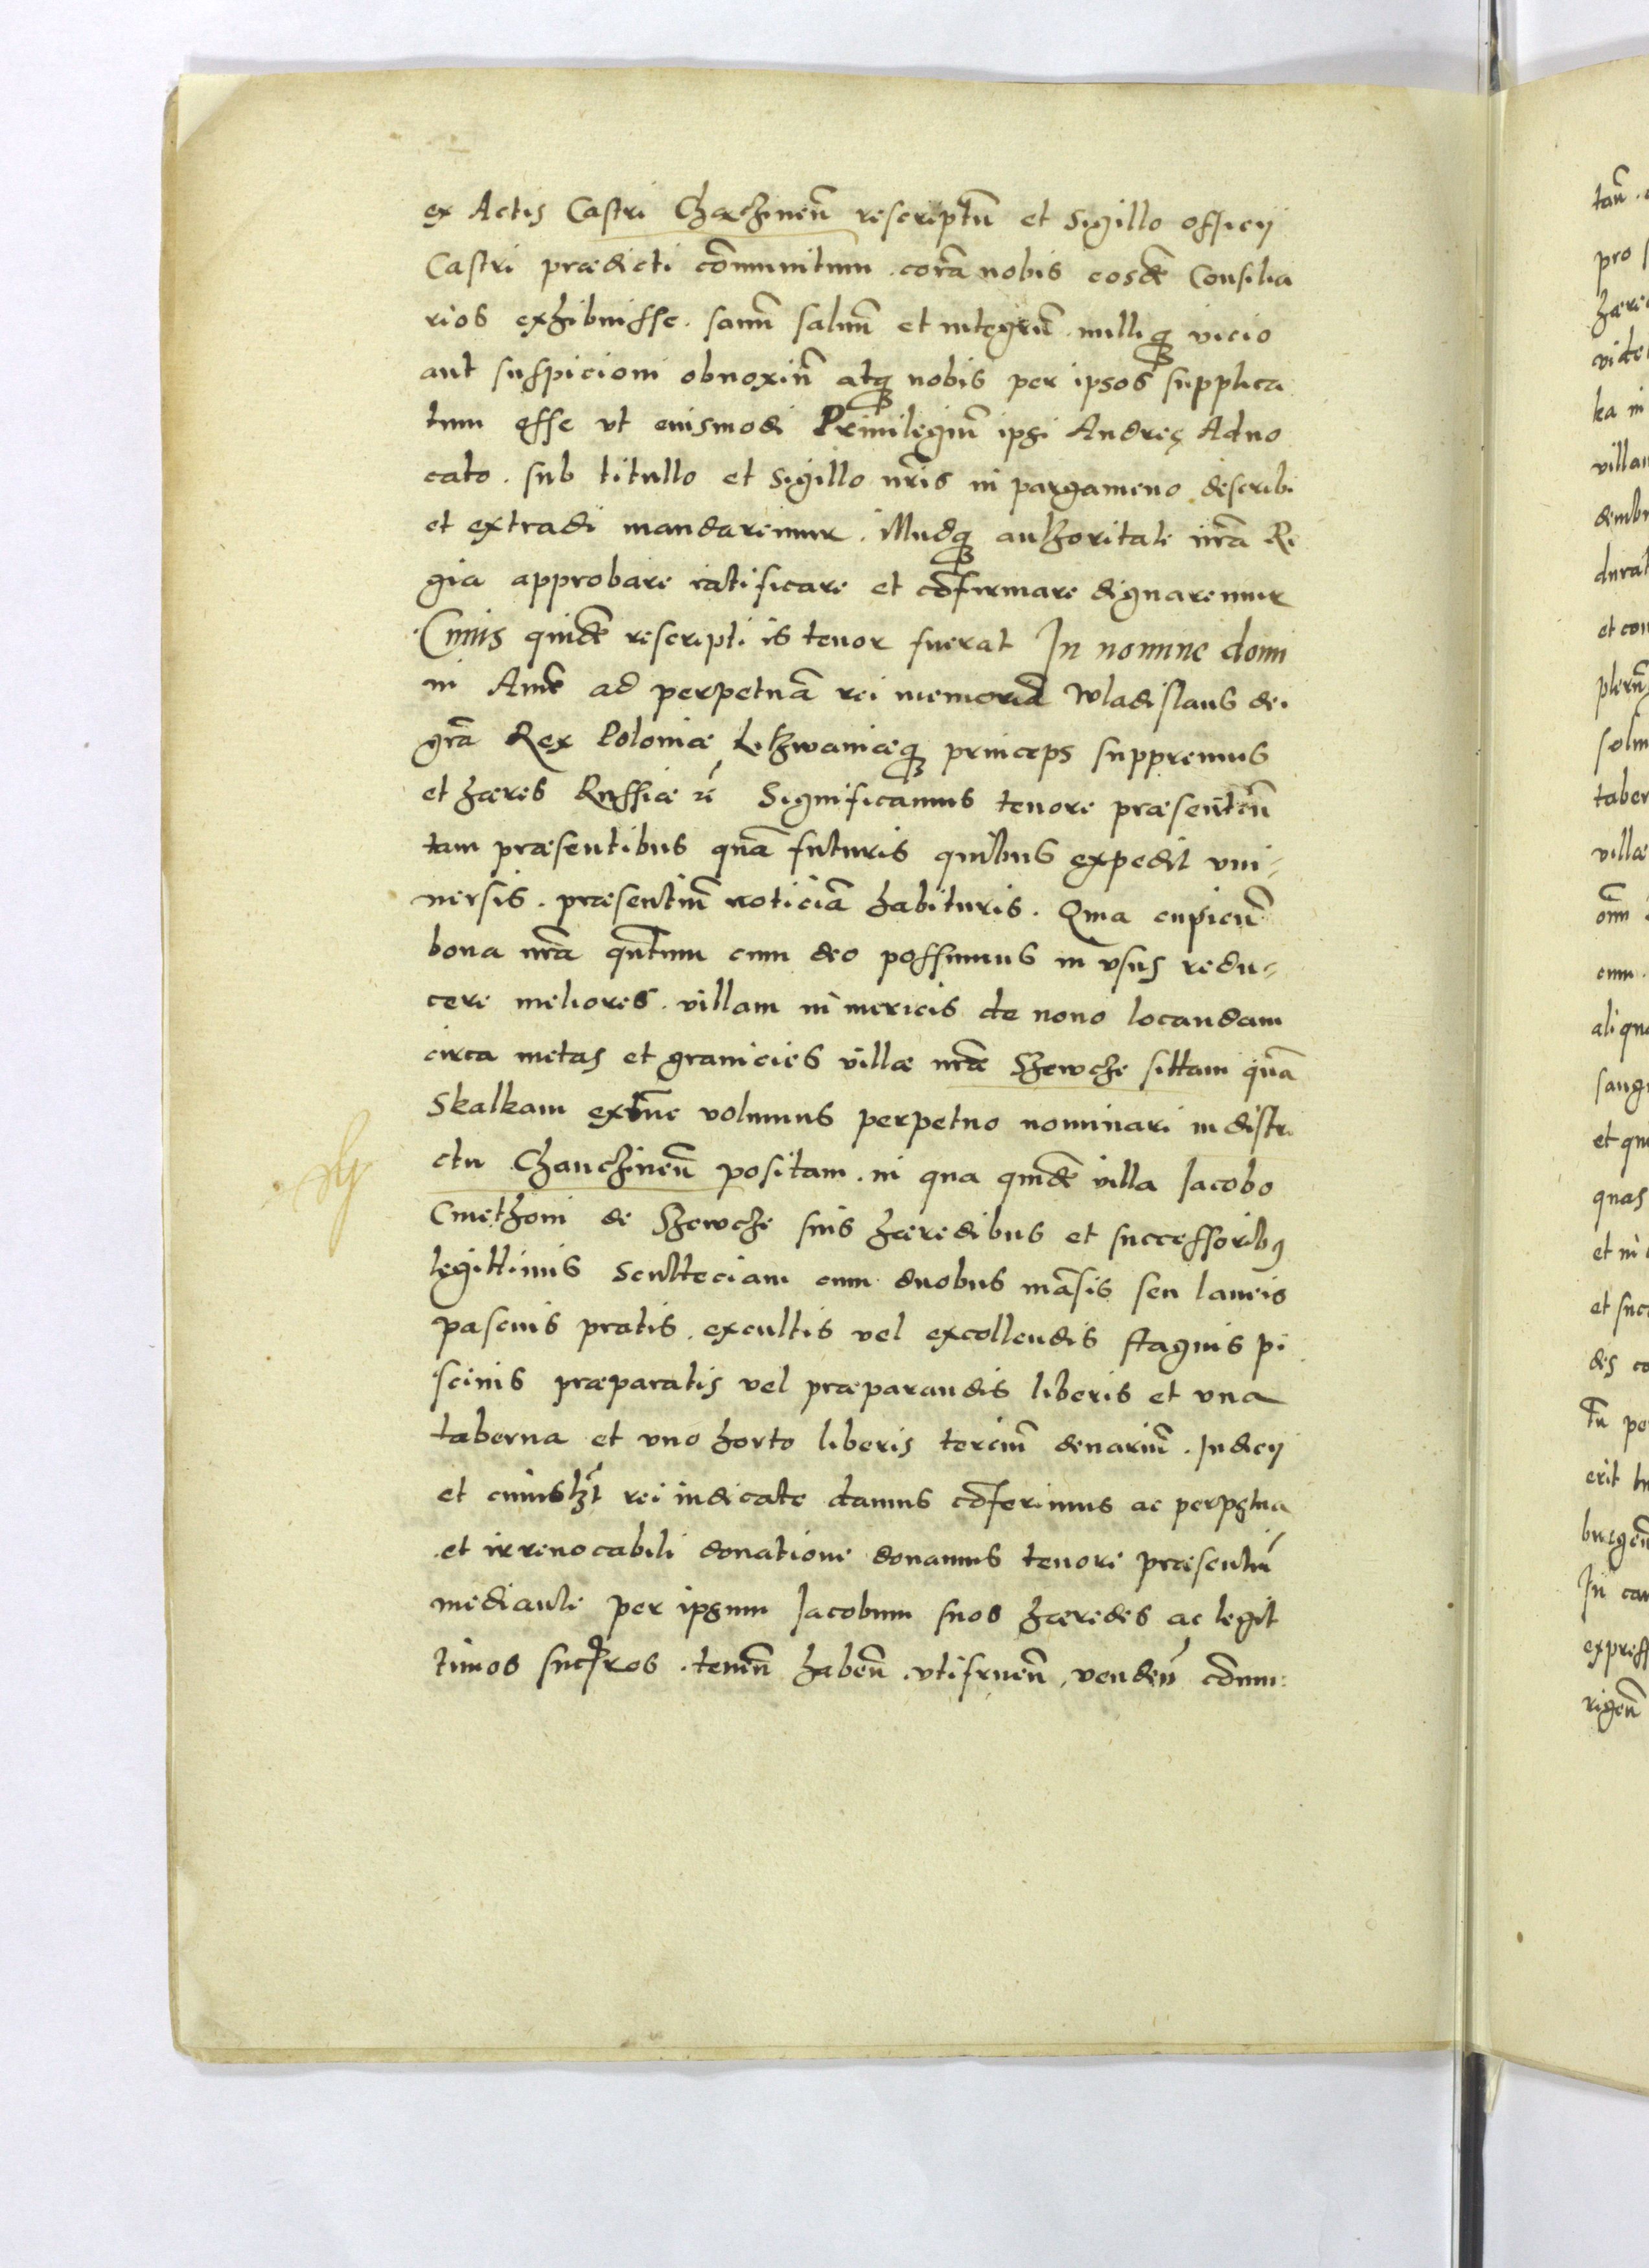 ex Actis Castri Chęczineñ rescriptũ et Sigillo officij
Castri prædicti cõmunitum. corã nobis eosdẽ Consilia
rios exhibuisse. sanũ saluũ et integrũ. nulliq̃ vicio
aut suspicioni obnoxiũ atq̃ nobis per ipsos supplica
tum esse vt eiusmodi Priuilegiũ ipsi Andreę Aduo
cato. sub titullo et Sigillo nr̃is in pargameno describi
et extradi mandaremur. illudq̃ authoritate nr̃a Re
gia approbare ratificare et cõfirmare dignaremur
Cuius quidẽ rescripti is tenor fuerat In nomine domi
ni Amẽ ad perpetuã rei memoriã Wladislaus dei
gr̃a Rex Poloniæ Lithwaniæq̃ princeps suppremus
et hæres Russiæ ꝛc̃ Significamus tenore præsentiũ
tam præsentibus quã futuris quibus expedit vni=
uersis. præsentiũ noticiã habituris. Quia cupieñ
bona nr̃a quãtum cum deo possumus in vsus redu=
cere meliores. villam in mericis de nouo locandam
circa metas et granicies villæ nr̃æ Shewche sittam quã
Skalkam extũc volumus perpetuo nominari in distri
ctu Chanczineñ positam. in qua quidẽ villa Jacobo
Cmethoni de Shewche suis hæredibus et successoribꝰ
legittimis Sculteciam cum duobus mãsis seu laneis
pascuis pratis. excultis vel excollendis stagnis pi
scinis præparatis vel præparandis liberis et vna
taberna et vno horto liberis terciũ denariũ. Judicij
et cuiuslib̃t rei iudicate damus cõferimus ac perpetua
et irreuocabili donatione donamus tenore præsentiũ
mediante per ipsum Jacobum suos hæredes ac legit
timos suc̃s̃ros. teneñ habeñ. vtifrueñ. vendeñ cõmu=